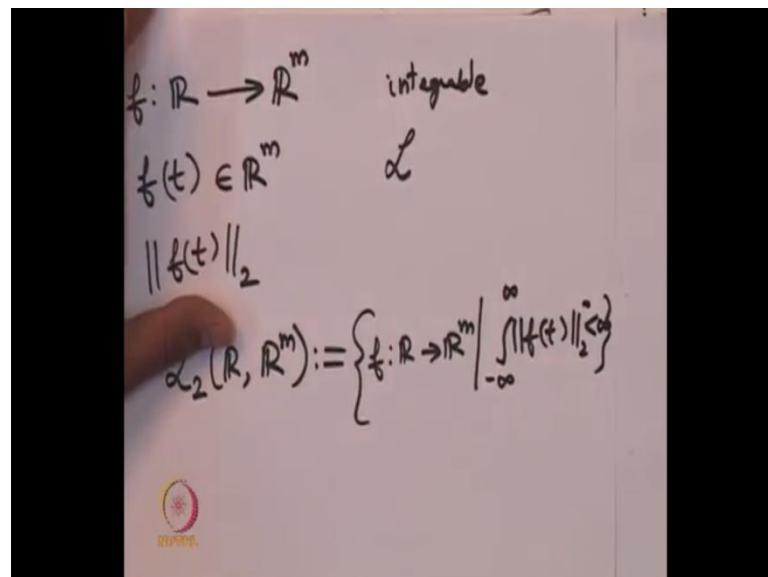 f: ℝ → ℝᵐ integrable
f(t) ∈ ℝᵐ ℒ
||f(t)||₂
ℒ₂(ℝ, ℝᵐ) := {f: ℝ → ℝᵐ | ∫_{-∞}^{∞} ||f(t)||₂² < ∞}
NPTEL